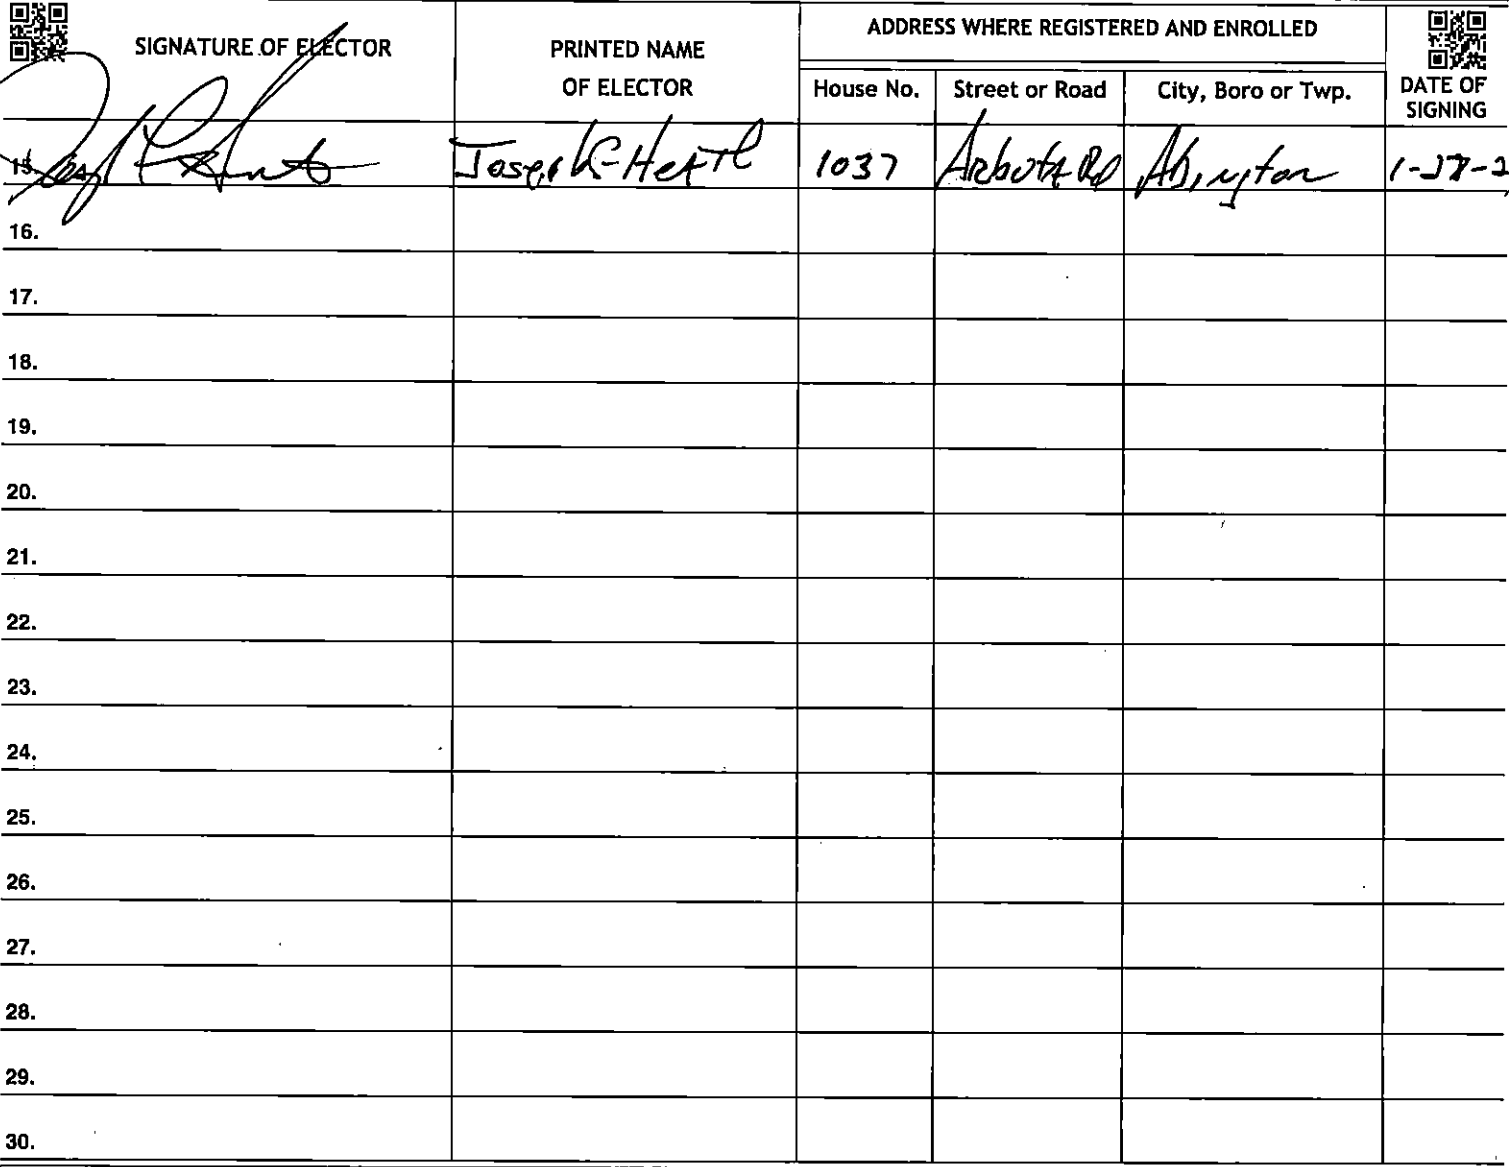 SIGNATURE OF ELECTOR
PRINTED NAME
OF ELECTOR
ADDRESS WHERE REGISTERED AND ENROLLED
House No. Street or Road City, Boro or Twp.
DATE OF
SIGNING
15. 1037 Rd Abington
16.
17.
18.
19.
20.
21.
22.
23.
24.
25.
26.
27.
28.
29.
30.